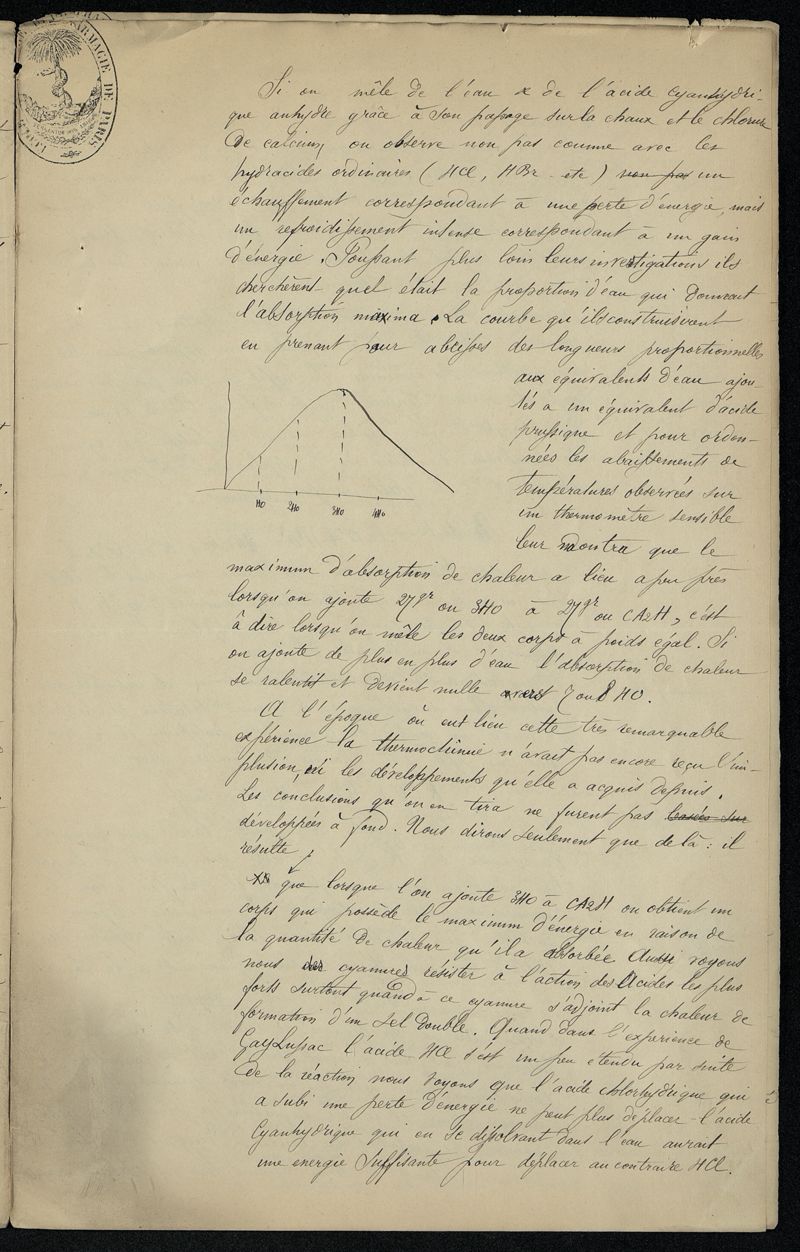 Si on mêle de l'eau & de l'acide cyanhydri-
que anhydre grâce à son passage sur la chaux et le chlorure
de calcium, on observe non pas comme avec les
hydracides ordinaires (HCl, HBr etc) non pas un
échauffement correspondant à une perte d'énergie, mais
un refroidissement intense correspondant à un gain
d'énergie. Poussant plus loin leurs investigations ils
cherchèrent quel était la proportion d'eau qui donnerait
l'absorption maxima. La courbe qu'ils construisirent
en prenant pour abcisses des longueurs proportionnelles
aux équivalents d'eau ajou-
tés a un équivalent d'acide
prussique et pour ordon-
nées les abaissements de
températures observées sur
un thermomètre sensible
leur montra que le
HO 2HO 3HO 4HO
maximum d'absorption de chaleur a lieu a peu près
lorsqu'on ajoute 27gr ou 3HO à 27gr ou CAzH, c'est
à dire lorsqu'on mêle les deux corps à poids égal. Si
on ajoute de plus en plus d'eau l'absorption de chaleur
se ralentit et devient nulle vers 7 ou 8 HO.
A l'époque où eut lieu cette très remarquable
expérience la thermochimie n'avait pas encore reçu l'im-
plusion, ni les développements qu'elle a acquis depuis.
Les conclusions qu'on en tira ne furent pas basées sur
développées à fond. Nous dirons seulement que de là : il
résulte
que lorsque l'on ajoute 3HO à CAzH on obtient un
corps qui possède le maximum d'énergie en raison de
la quantité de chaleur qu'il a absorbée Aussi voyons
nous des cyanures résister à l'action des Acides les plus
forts surtout quand à ce cyanure s'adjoint la chaleur de
formation d'un sel double. Quand dans l'expérience de
Gay Lussac l'acide HCl s'est un peu étendu par suite
de la réaction nous voyons que l'acide chlorhydrique qui
a subi une perte d'énergie ne peut plus déplacer l'acide
cyanhydrique qui en se dissolvant dans l'eau aurait
une energie suffisante pour déplacer au contraire HCl.